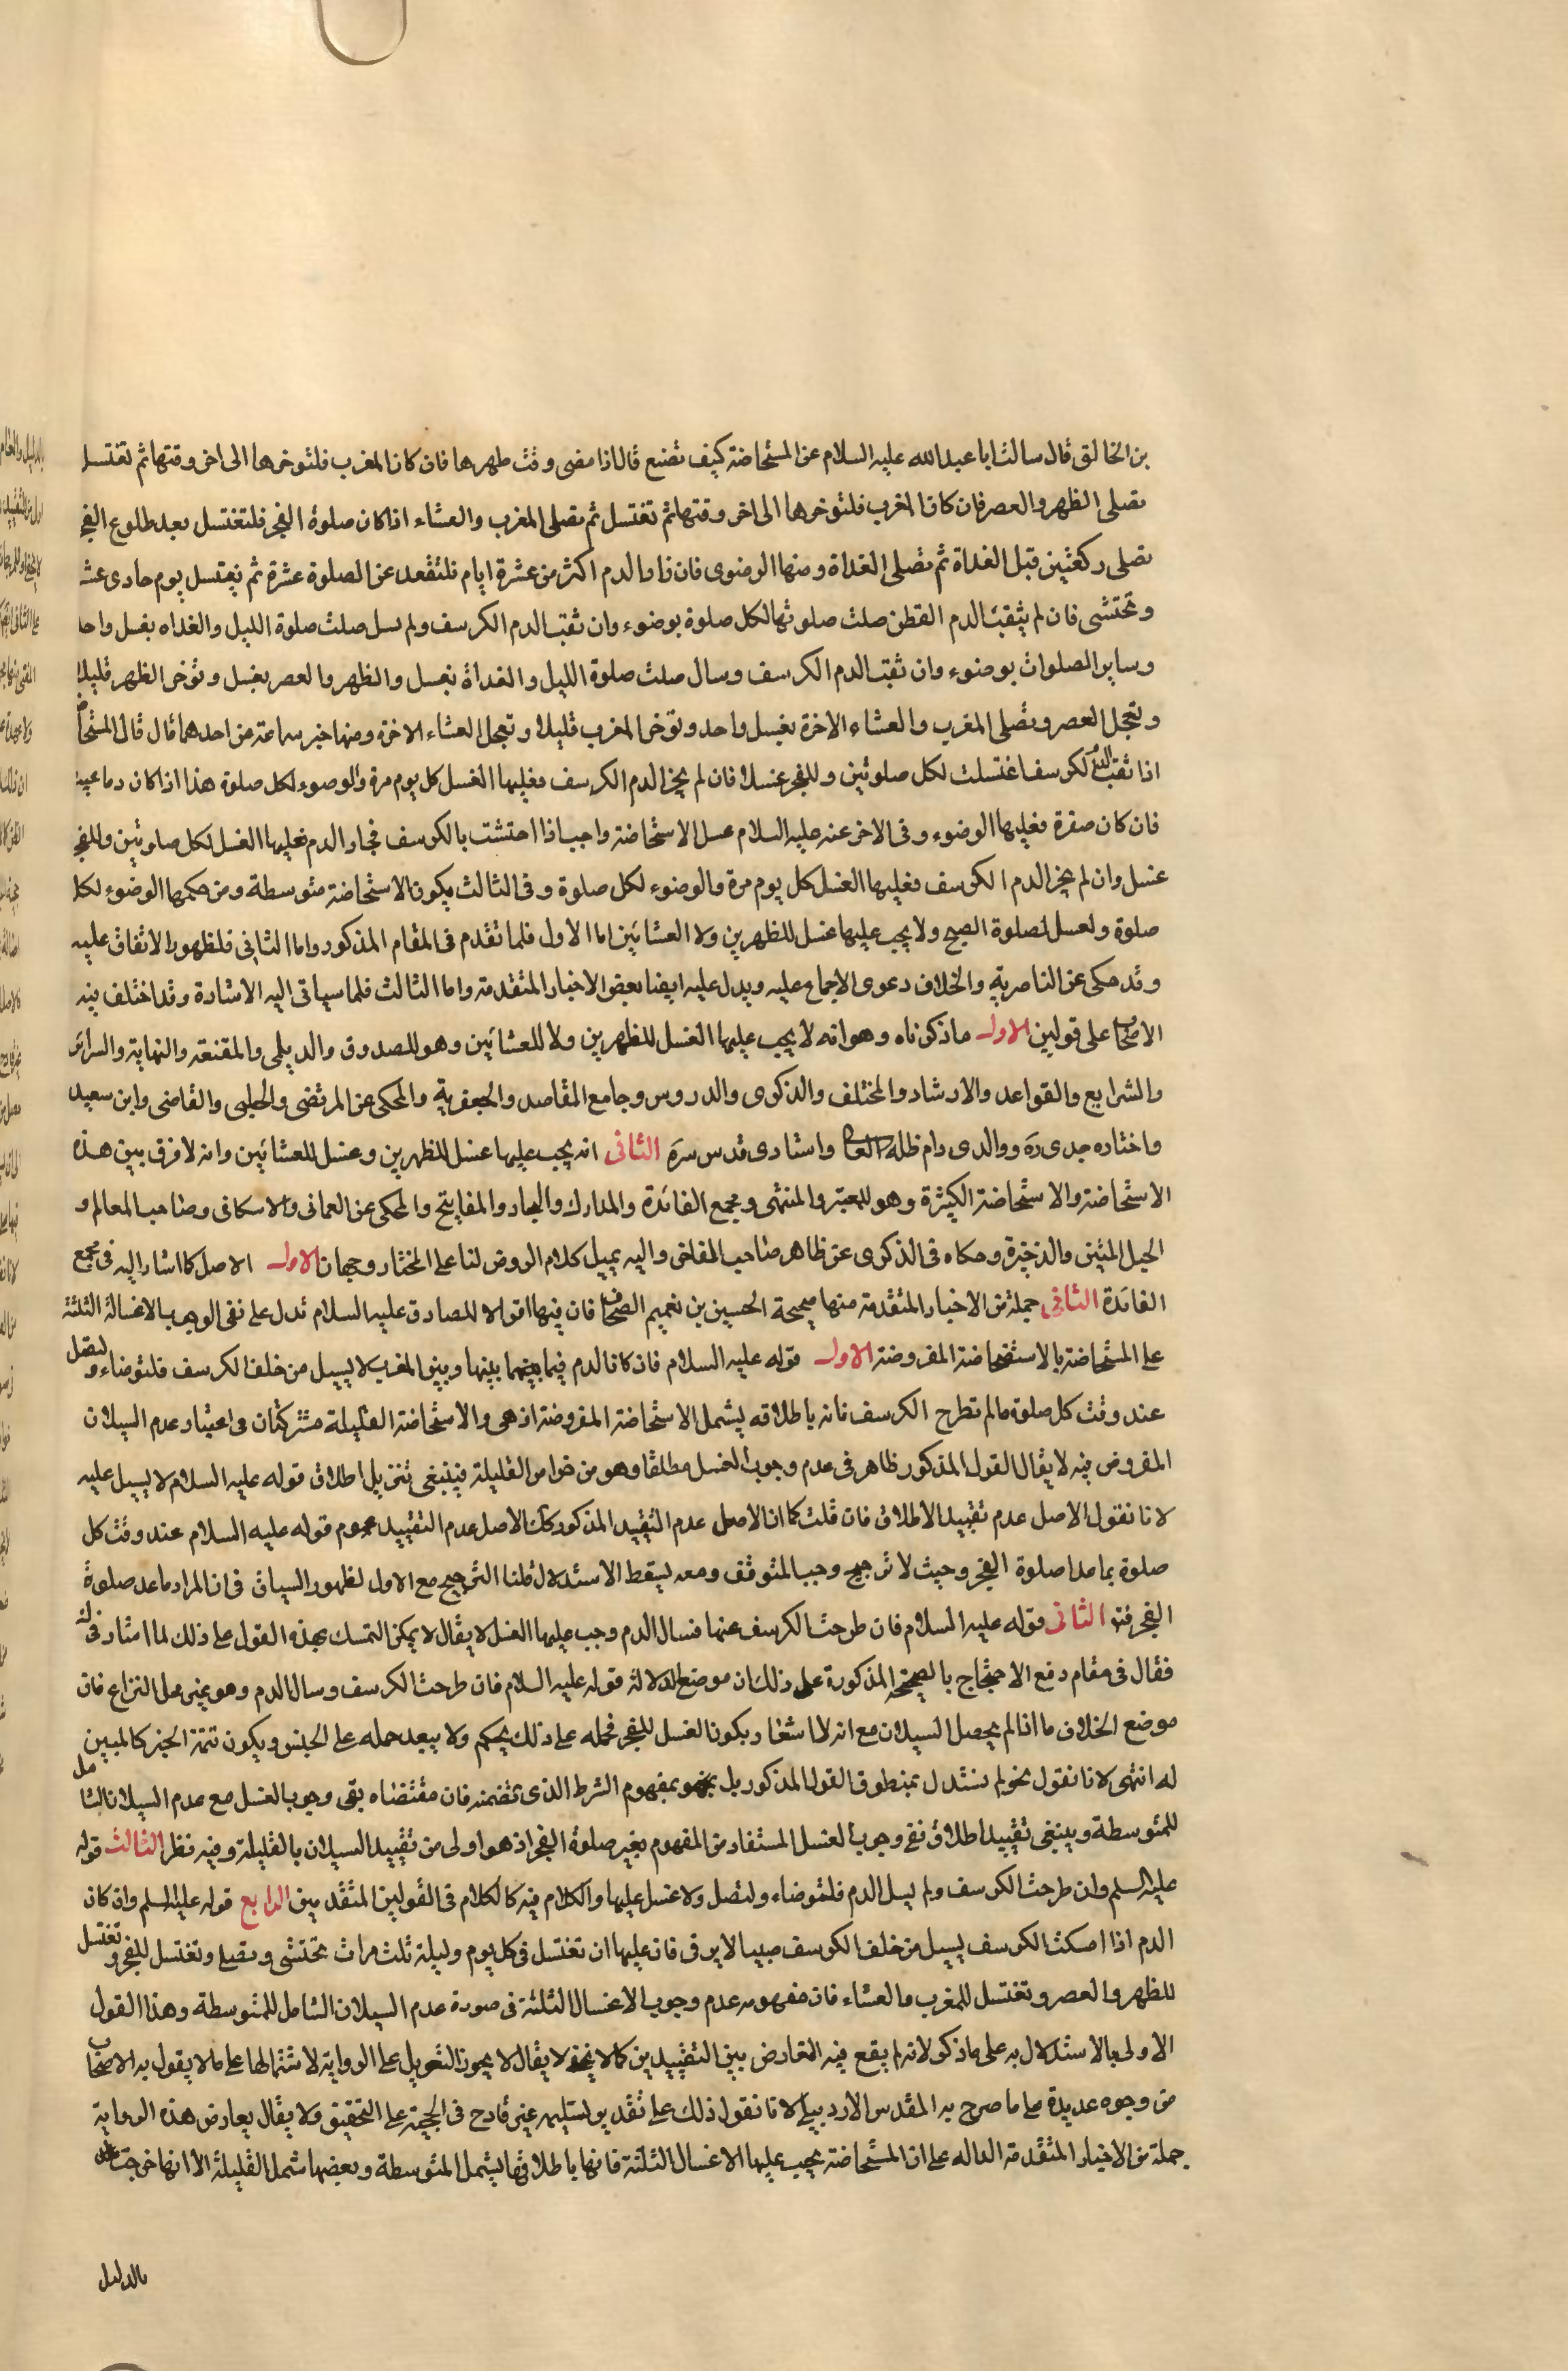 بن الخالق قال سالت ابا عبد الله عليه السلام عن المستحاضة كيف تصنع قال اذا مضى وقت طهرها فان كان المغرب فلتوخرها الى اخر وقتها ثم تغتسل
تصلى الظهر والعصر فان كان المغرب فلتوخرها الى اخر وقتها ثم تغتسل ثم تصلى المغرب والعشاء اذا كان صلوة الفجر فلتغتسل بعد طلوع الفجر
تصلى ركعتين قبل الغداة ثم تصلى الغداة ومنها الرضوى فان زاد الدم اكثر من عشرة ايام فلتقعد عن الصلوة عشرة ثم يغتسل يوم حادى عشر
وتحتشى فان لم يثقب الدم القطن صلت صلوتها لكل صلوة بوضوء وان ثقب الدم الكرسف ولم يسل صلت صلوة الليل والغداه بغسل واحد
وساير الصلوات بوضوء وان ثقب الدم الكرسف وسال صلت صلوة الليل والغداة بغسل والظهر والعصر بغسل وتؤخر الظهر قليلا
وتعجل العصر وتصلى المغرب والعشاء الاخرة بغسل واحد وتؤخر المغرب قليلا وتعجل العشاء الاخرة ومنها خبر سماعة عن احدهما قال قال المستحاضة
اذا ثقب الدم الكرسف اغتسلت لكل صلوتين وللفجر غسلا فان لم يجز الدم الكرسف فعليها الغسل كل يوم مرة والوضوء لكل صلوة هذا اذا كان دما عبيطا
فان كان صفرة فعليها الوضوء وفى الاخر عنه عليه السلام غسل الاستحاضة واجب اذا احتشت بالكرسف فجاز الدم فعليها الغسل لكل صلوتين وللفجر
غسل وان لم يجز الدم الكرسف فعليها الغسل كل يوم مرة والوضوء لكل صلوة وفى الثالث يكون الاستحاضة متوسطة ومن حكمها الوضوء لكل
صلوة ولغسل لصلوة الصبح ولا يجب عليها غسل للظهرين ولا العشائين اما الاول فلما تقدم فى المقام المذكور واما الثانى فلظهور الاتفاق عليه
وقد حكى عن الناصرية والخلاف دعوى الاجماع عليه ويدل عليه ايضا بعض الاخبار المتقدمة واما الثالث فلما سياتى اليه الاشارة وقد اختلف فيه
الاصحاب على قولين الاول ما ذكرناه وهو انه لا يجب عليها الغسل للظهرين ولا للعشائين وهو للصدوق والديلمى والمقنعة والنهاية والسرائر
والشرايع والقواعد والارشاد والمختلف والذكرى والدروس وجامع المقاصد والجعفرية والمحكى عن المرتضى والحلبى والقاضى وابن سعيد
واختاره جدى ره ووالدى دام ظله العالى واستادى قدس سره الثانى انه يجب عليها غسل للظهرين وغسل للعشائين وانه لا فرق بين هذه
الاستحاضة والاستحاضة الكثيرة وهو للمعتبر والمنتهى ومجمع الفائدة والمدارك والبحار والمفاتيح والمحكى عن العمانى والاسكافى وصاحب المعالم و
الحبل المتين والذخيرة وحكاه فى الذكرى عن ظاهر صاحب الفاخر واليه يميل كلام الروض لنا على المختار وجهان الاول الاصل كما اشار اليه فى مجمع
الفائدة الثانى جملة من الاخبار المتقدمة منها صحيحة الحسين بن نعيم الصحاف فان فيها اقوالا للصادق عليه السلام تدل على نفى الوجوب بالاغسال الثلثة
على المستحاضة بالاستحاضة المفروضة الاول قوله عليه السلام فان كان الدم فيما بينهما بينها وبين المغرب لا يسيل من خلف الكرسف فلتوضاء ولتصل
عند وقت كل صلوة ما لم تطرح الكرسف فانه باطلاقه يشمل الاستحاضة المفروضة اذ هى والاستحاضة القليلة مشتركتان فى اعتبار عدم السيلان
المفروض فيه لا يقال القول المذكور ظاهر فى عدم وجوب الغسل مطلقا وهو من خواص القليلة فينبغى تنزيل اطلاق قوله عليه السلام لا يسيل عليه
لانا نقول الاصل عدم تقييد الاطلاق فان قلت كما ان الاصل عدم التقييد المذكور كك الاصل عدم التقييد عموم قوله عليه السلام عند وقت كل
صلوة بما عدا صلوة الفجر وحيث لا ترجيح وجب المتوقف ومعه يسقط الاستدلال قلنا الترجيح مع الاول لظهور السياق فى ان المراد ما عدا صلوة
الفجر فته الثانى قوله عليه السلام فان طرحت الكرسف عنها فسال الدم وجب عليها الغسل لا يقال لا يمكن التمسك بهذه القول على ذلك لما اشار فى ك
فقال فى مقام دفع الاحتجاج بالصحيحة المذكورة على ذلك ان موضع الدلالة قوله عليه السلام فان طرحت الكرسف وسال الدم وهو غير محل النزاع فان
موضع الخلاف ما اذا لم يحصل السيلان مع انه لا اشعار بكون الغسل للفجر فحمله على ذلك تحكم ولا يبعد حمله على الجنس ويكون تتمة الخبر كالمبين
له انتهى لانا نقول نحو لم نستدل بمنطوق القول المذكور بل بمفهوم الشرط الذى تضمنه فان مقتضاه نفى وجوب الغسل مع عدم السيلان الشامل
للمتوسطة وينبغى تقييد اطلاق نفى وجوب الغسل المستفاد من المفهوم بغير صلوة الفجر اذ هو اولى من تقييد السيلان بالقليلة وفيه نظر الثالث قوله
عليه السلم وان طرحت الكرسف ولم يسل الدم فلتوضاء ولتصل ولا غسل عليها والكلام فيه كالكلام فى القولين المتقدمين الرابع قوله عليه السلم وان كان
الدم اذا امسكت الكرسف يسيل من خلف الكرسف صبيبا لا يرقى فان عليها ان تغتسل فى كل يوم وليلة ثلث مرات تحتشى وتصلى وتغتسل للفجر وتغتسل
للظهر والعصر وتغتسل للمغرب والعشاء فان مفهومه عدم وجوب الاغسال الثلثة فى صورة عدم السيلان الشامل للمتوسطة وهذا القول
الاولى بالاستدلال به على ما ذكر لانه لم يقع فيه التعارض بين التقييدين كما لا يخفى لا يقال لا يجوز التعويل على الرواية لاشتمالها على ما لا يقول به الاصحاب
من وجوه عديدة على ما صرح به المقدس الاردبيلى لانا نقول ذلك على تقدير تسليمه غير قادح فى الحجية على التحقيق ولا يقال يعارض هذه الرواية
جملة من الاخبار المتقدمة الداله على ان المستحاضة يجب عليها الاغسال الثلثة فانها باطلاقها يشمل المتوسطة وبعضها شمل القليلة الا انها خرجت
بالدليل